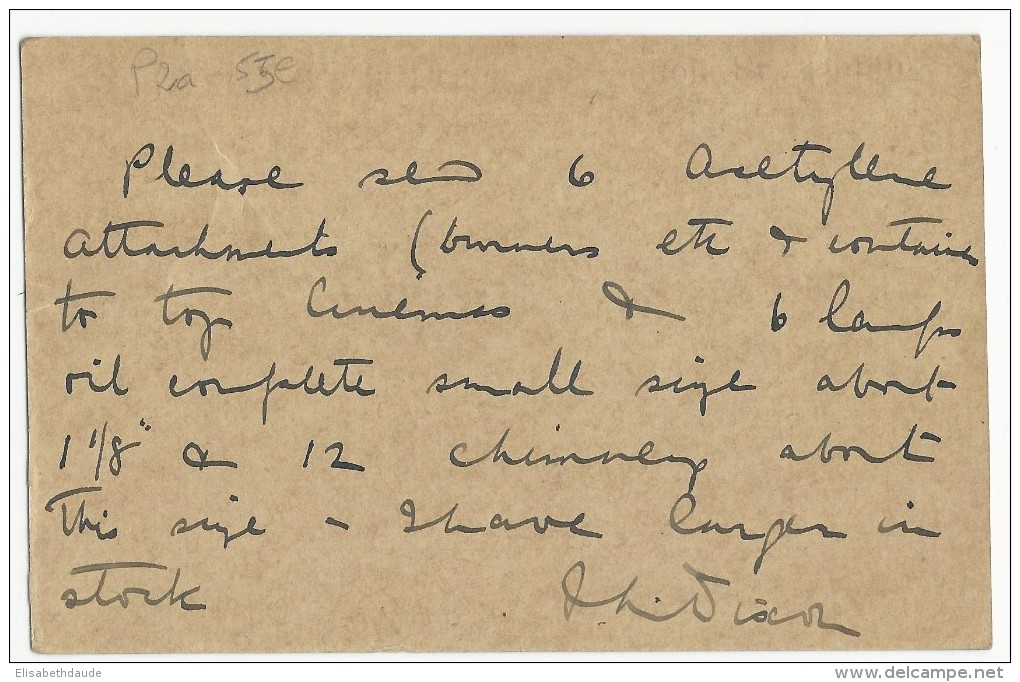 P2a 55e
Please send 6 Acetylene
attachments (burners etc & container
to top Cinemas & 6 lamps
oil complete small size about
1 1/8" & 12 chimneys about
This size - I have larger in
stock
Dixon
Elisabethdaude
www.delcampe.net